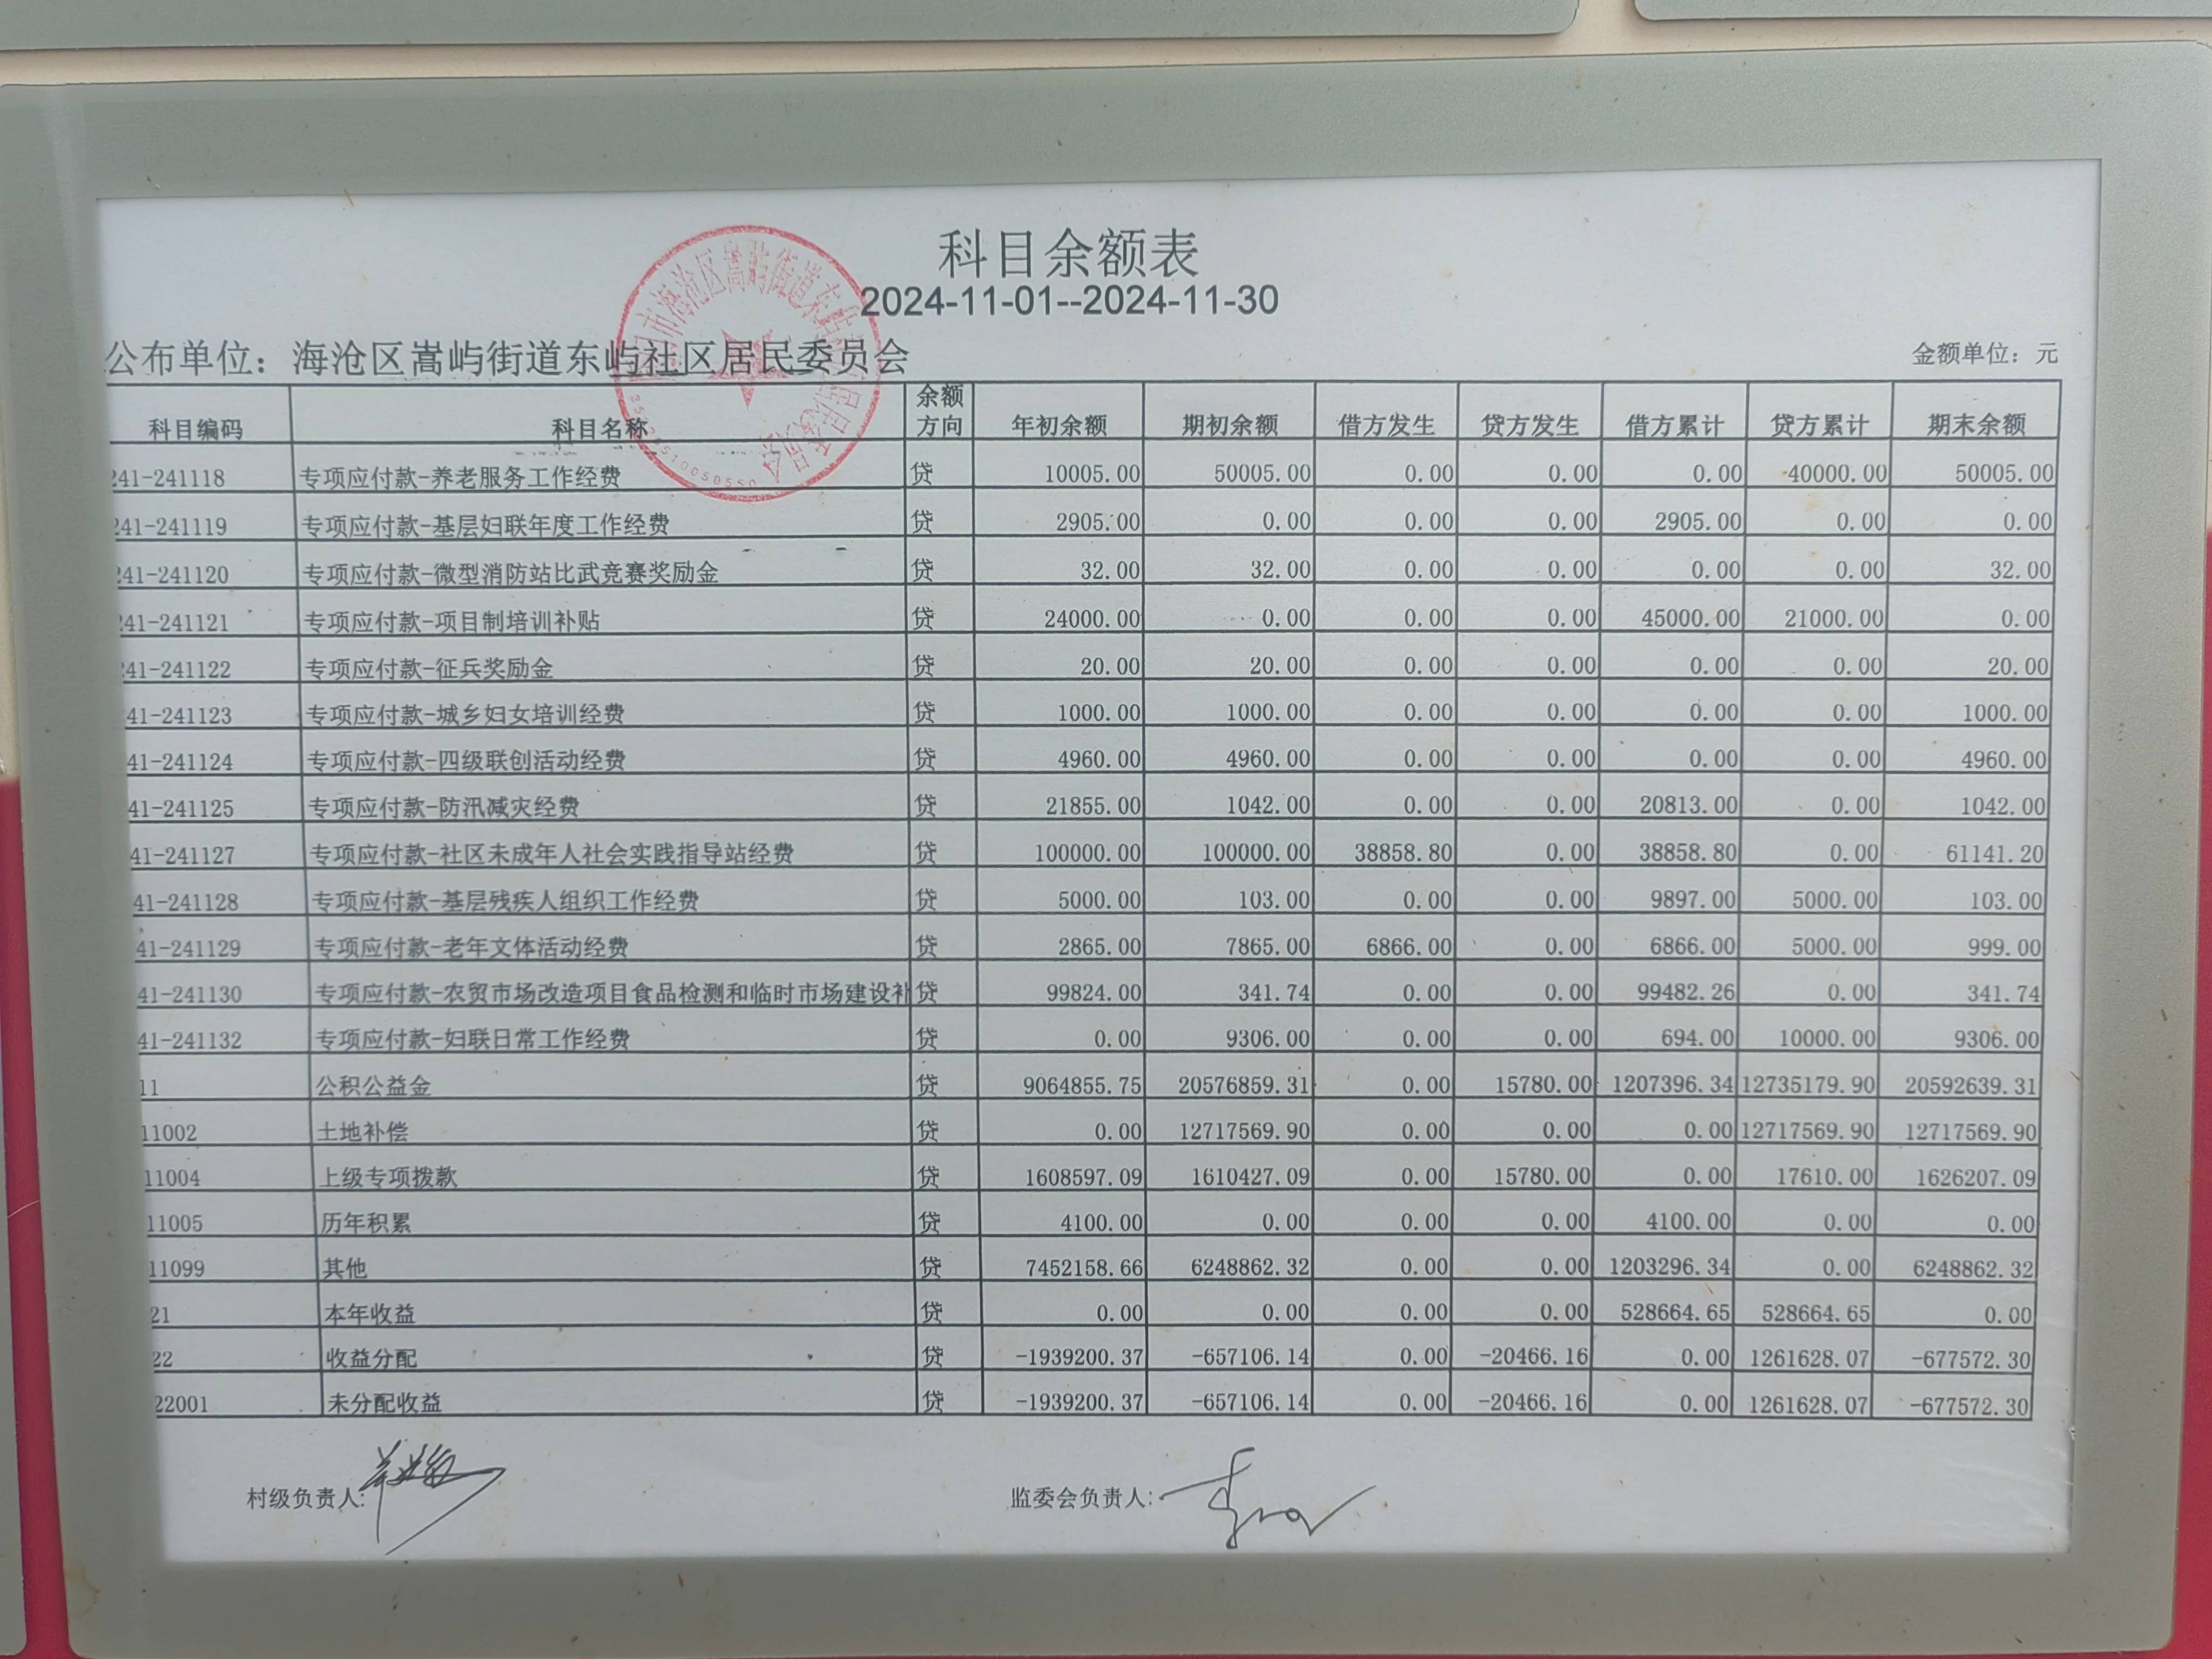 科目余额表
2024-11-01--2024-11-30
公布单位：海沧区嵩屿街道东屿社区居民委员会 金额单位：元
科目编码 科目名称 余额方向 年初余额 期初余额 借方发生 贷方发生 借方累计 贷方累计 期末余额
241-241118 专项应付款-养老服务工作经费 贷 10005.00 50005.00 0.00 0.00 0.00 40000.00 50005.00
241-241119 专项应付款-基层妇联年度工作经费 贷 2905.00 0.00 0.00 0.00 2905.00 0.00 0.00
241-241120 专项应付款-微型消防站比武竞赛奖励金 贷 32.00 32.00 0.00 0.00 0.00 0.00 32.00
241-241121 专项应付款-项目制培训补贴 贷 24000.00 0.00 0.00 0.00 45000.00 21000.00 0.00
41-241122 专项应付款-征兵奖励金 贷 20.00 20.00 0.00 0.00 0.00 0.00 20.00
41-241123 专项应付款-城乡妇女培训经费 贷 1000.00 1000.00 0.00 0.00 0.00 0.00 1000.00
41-241124 专项应付款-四级联创活动经费 贷 4960.00 4960.00 0.00 0.00 0.00 0.00 4960.00
41-241125 专项应付款-防汛减灾经费 贷 21855.00 1042.00 0.00 0.00 20813.00 0.00 1042.00
41-241127 专项应付款-社区未成年人社会实践指导站经费 贷 100000.00 100000.00 38858.80 0.00 38858.80 0.00 61141.20
41-241128 专项应付款-基层残疾人组织工作经费 贷 5000.00 103.00 0.00 0.00 9897.00 5000.00 103.00
41-241129 专项应付款-老年文体活动经费 贷 2865.00 7865.00 6866.00 0.00 6866.00 5000.00 999.00
41-241130 专项应付款-农贸市场改造项目食品检测和临时市场建设补 贷 99824.00 341.74 0.00 0.00 99482.26 0.00 341.74
41-241132 专项应付款-妇联日常工作经费 贷 0.00 9306.00 0.00 0.00 694.00 10000.00 9306.00
11 公积公益金 贷 9064855.75 20576859.31 0.00 15780.00 1207396.34 12735179.90 20592639.31
11002 土地补偿 贷 0.00 12717569.90 0.00 0.00 0.00 12717569.90 12717569.90
11004 上级专项拨款 贷 1608597.09 1610427.09 0.00 15780.00 0.00 17610.00 1626207.09
11005 历年积累 贷 4100.00 0.00 0.00 0.00 4100.00 0.00 0.00
11099 其他 贷 7452158.66 6248862.32 0.00 0.00 1203296.34 0.00 6248862.32
21 本年收益 贷 0.00 0.00 0.00 0.00 528664.65 528664.65 0.00
22 收益分配 贷 -1939200.37 -657106.14 0.00 -20466.16 0.00 1261628.07 -677572.30
22001 未分配收益 贷 -1939200.37 -657106.14 0.00 -20466.16 0.00 1261628.07 -677572.30
村级负责人: 监委会负责人: